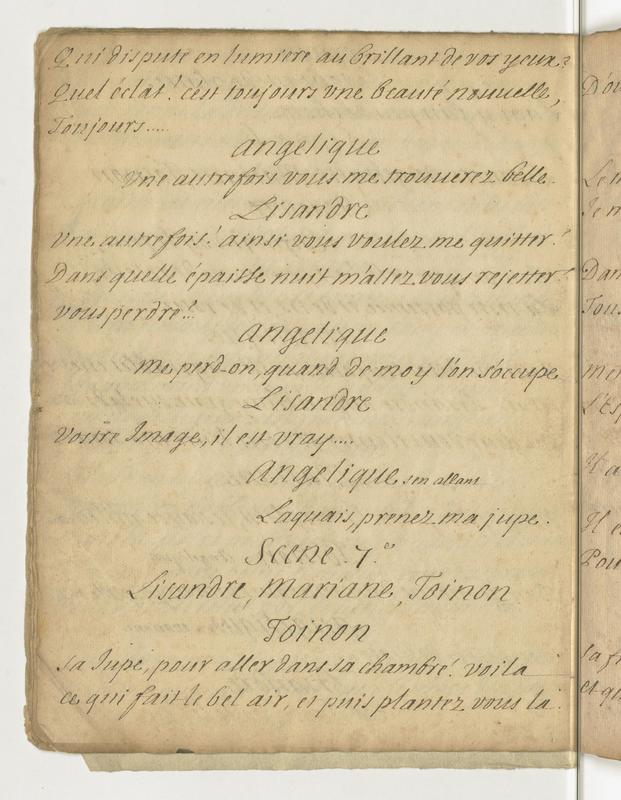 Qui dispute en lumiere au brillant de vos yeux?
Quel éclat! c'est toujours vne beauté nouuelle,
Toujours....
Angelique
Vne autrefois vous me trouuerez belle.
Lisandre
Vne autrefois! ainsi vous voulez me quitter!
Dans quelle épaisse nuit m'allez vous rejetter!
vous perdre!..
Angelique
me perd-on, quand de moy l'on s'occupe
Lisandre
Vostre Image, il est vray....
Angelique s'en allant
Laquais, prenez ma jupe.
Scene. 7.e
Lisandre, Mariane, Toinon
Toinon
sa Jupe, pour aller dans sa chambre! voila
ce qui fait le bel air, et puis plantez vous la.